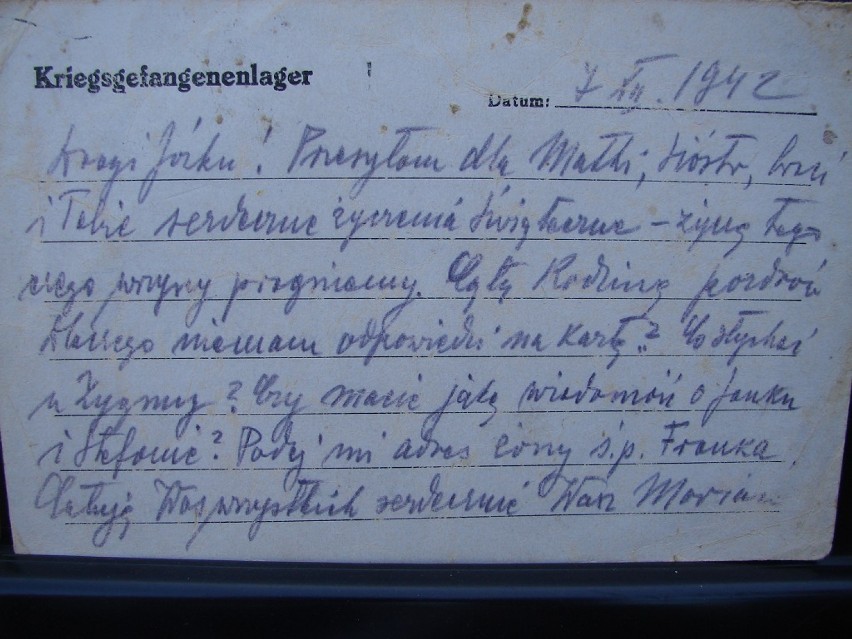 Kriegsgefangenenlager
Datum: 7 XII. 1942
Drogi Józku! Przesyłam dla Matki, Sióstr, braci
i Tobie serdeczne życzenia Świąteczne – życzę tego
czego wszyscy pragniemy. Całą Rodzinę pozdrów
Dlaczego niemam odpowiedzi na kartę? Co słychać
u Zygmuś? Czy macie jaką wiadomość o Janku
i Stefanie? Podaj mi adres żony ś.p. Franka.
Całuję Was wszystkich serdecznie Wasz Marian